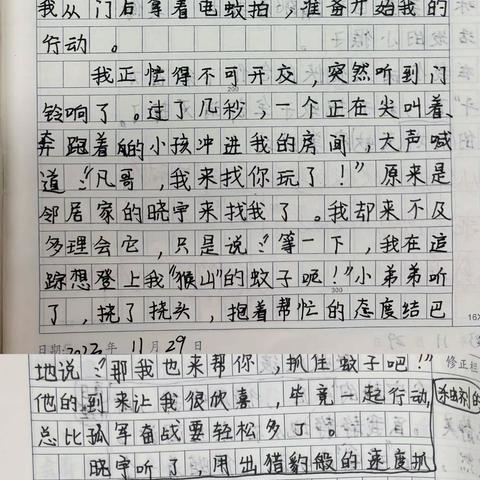 我从门后拿着电蚊拍，准备开始我的
行动。
我正忙得不可开交，突然听到门
铃响了。过了几秒，一个正在尖叫着、
奔跑着的小孩冲进我的房间，大声喊
道："凡哥，我来找你玩了！"原来是
邻居家的晓宇来找我了。我却来不及
多理会它，只是说："等一下，我在追
踪想登上我"猴山"的蚊子呢！"小弟弟听
了，挠了挠头，抱着帮忙的态度结巴
日期：2023年 11月29日
地说："那我也来帮你，抓住蚊子吧！"
修正栏
他的到来让我很放喜，毕竟一起行动，
杀虫剂的
总比孤军奋战要轻松多了。
晓宇听了，用出猎豹般的速度抓
200
300